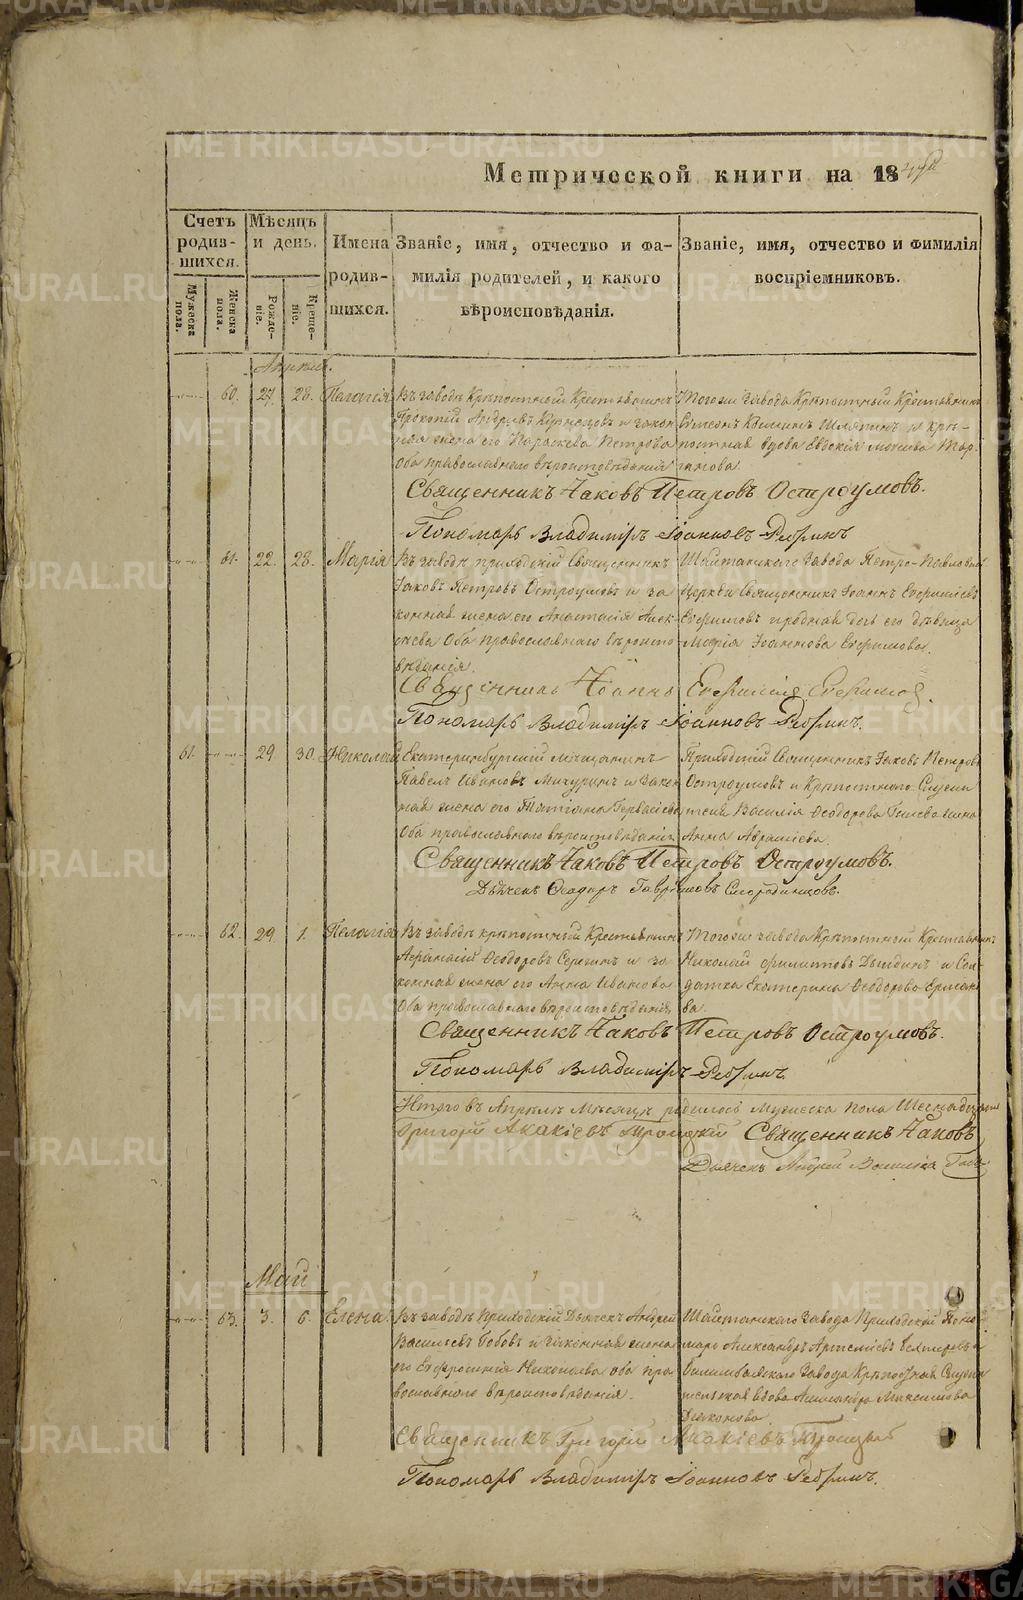 METRIKI.GASO-URAL.RU METRIKI.GASO-URAL.RU
Метрической книги на 18
Счетъ родив-шихся.
Мужеска пола.
Женска пола.
Мѣсяцъ и день.
Рожде-ніе.
Креще-ніе.
Имена родив-шихся.
Званіе, имя, отчество и фа-
милія родителей, и какого
вѣроисповѣданія.
Званіе, имя, отчество и фимилія
воспріемниковъ.
Апрѣль.
60. 27. 28. Пелагія
Въ заводѣ Крѣпостный Крестьянинъ
Прокопій Андреевъ Кузнецовъ и закон
ная жена его Параскева Петрова
Оба православнаго вѣроисповѣданія
Тогоже Завода Крѣпостный Крестьянинъ
Симеонъ Козминъ и Крѣ-
постная вдова Евдокія
Священникъ Іаковъ Петровъ Остроумовъ.
Пономарь Владиміръ Іоанновъ Ребринъ
61. 22. 28. Марія
Въ заводѣ приходскій Священникъ
Іаковъ Петровъ Остроумовъ и за
конная жена его Анастасія Алек-
сѣева Оба православнаго вѣроиспо
вѣданія.
Шайтанскаго Завода Петро-Павловской
Церкви Священникъ Іоаннъ Евфиміевъ
Евфимовъ и родная дочь его дѣвица
Марія Іоаннова Евфимова.
Священникъ Іоаннъ Евфиміевъ Евфимовъ
Пономарь Владиміръ Іоанновъ Ребринъ.
61. 29 30. Николай
Екатеринбургскій мѣщанинъ
Павелъ Ивановъ Мичуринъ и Закон
ная жена его Татіана Гервасіева
Оба православнаго вѣроисповѣданія
Приходскій Священникъ Іаковъ Петровъ
Остроумовъ и Крѣпостнаго Служи
теля Василія Ѳеодорова жена
Анна
Священникъ Іаковъ Петровъ Остроумовъ.
Дьячекъ Ѳеодоръ Гавриловъ Смородинцовъ.
62. 29 1. Пелагія
Въ заводѣ крѣпостный Крестьянинъ
Аѳанасій Ѳеодоровъ Серегинъ и за
конная жена его Анна Иванова
Оба православнаго вѣроисповѣданія
Тогоже завода Крѣпостный Крестьянинъ
Николай Филипповъ и Сол-
датка Екатерина Ѳеодорова
ва.
Священникъ Іаковъ Петровъ Остроумовъ.
Пономарь Владиміръ Ребринъ
Итого въ Апрѣлѣ Мѣсяцѣ родилось Мужеска пола
Григорій Акакіевъ Троицкій Священникъ Іаковъ
Дьячекъ Андрей Васильевъ
Май
63. 3. 6. Елена.
Въ заводѣ Приходскій Дьячекъ Андрей
Васильевъ Бобовъ и законная жена
его Евфросинія Николаева оба пра
вославнаго вѣроисповѣданія.
Шайтанскаго Завода Приходской Поно
марь Александръ и
Билимбаевскаго Завода Крѣпостная Служи
тельская вдова Александра Максимова
Дьяконова
Священникъ Григорій Акакіевъ Троицкій
Пономарь Владиміръ Іоанновъ Ребринъ.